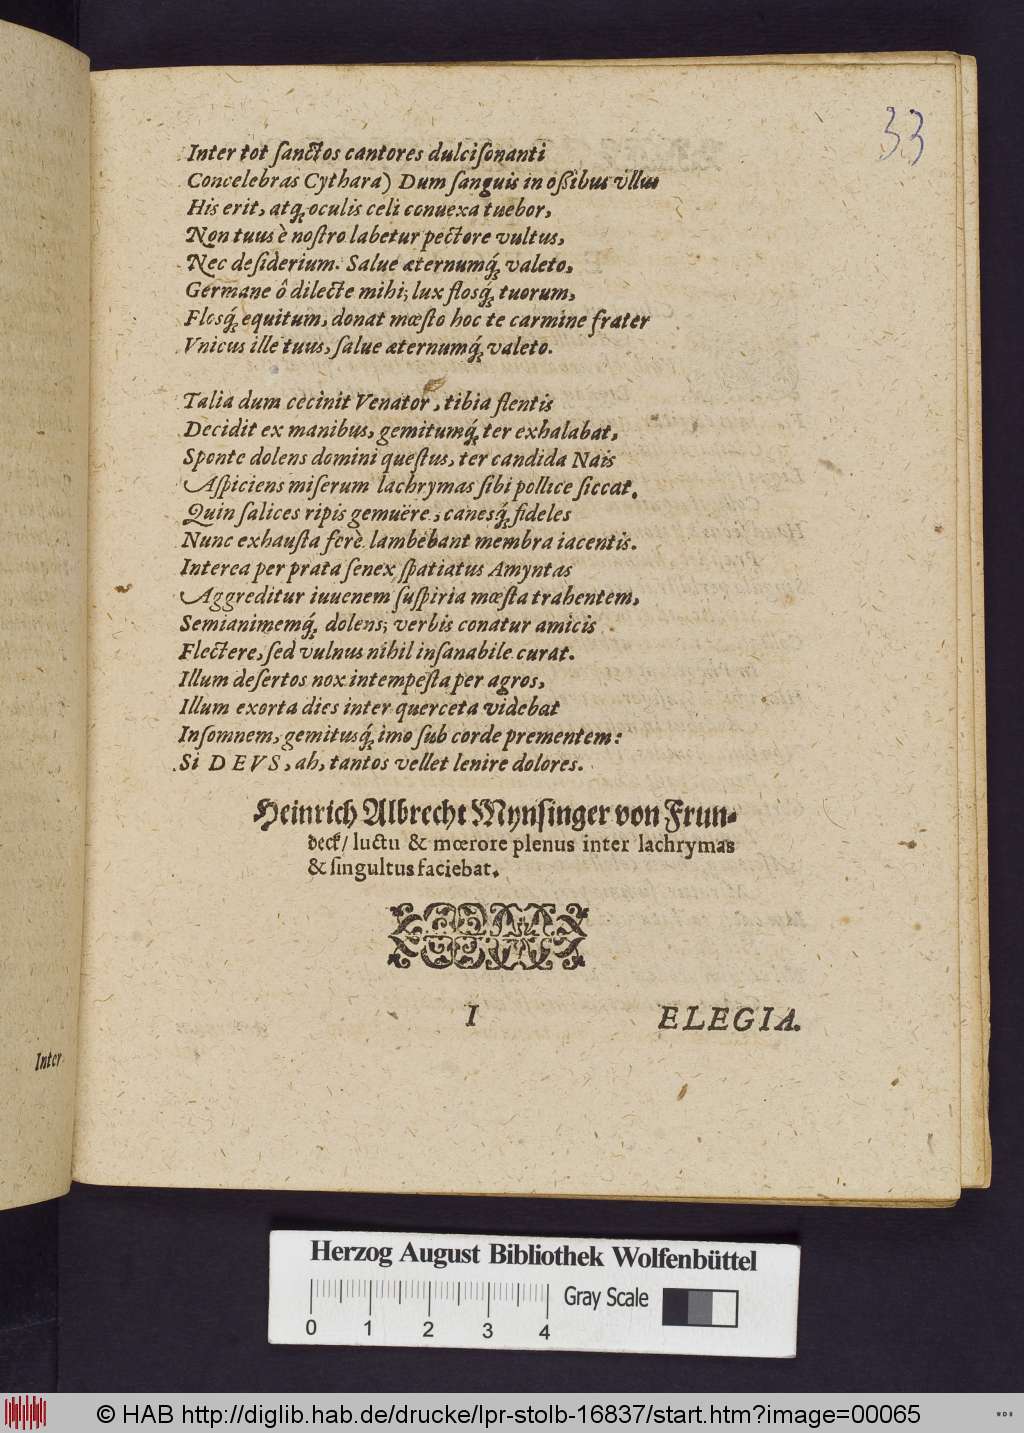 33
Inter tot ſanctos cantores dulciſonanti
Concelebras Cythara) Dum ſanguis in oßibus vllus
His erit, atq́ oculis celi conuexa tuebor,
Non tuus è noſtro labetur pectore vultus,
Nec deſiderium. Salue æternumq́ valeto,
Germane ô dilecte mihi; lux floſq́ tuorum,
Floſq́ equitum, donat mœſto hoc te carmine frater
Vnicus ille tuus, ſalue æternumq́ valeto.
Talia dum cecinit Venator, tibia flentis
Decidit ex manibus, gemitumq́ ter exhalabat,
Sponte dolens domini queſtus, ter candida Nais
Aſpiciens miſerum lachrymas ſibi pollice ſiccat.
Quin ſalices ripis gemuëre, canesq́ fideles
Nunc exhauſta ferè lambebant membra iacentis.
Interea per prata ſenex ſpatiatus Amyntas
Aggreditur iuuenem ſuſpiria mœſta trahentem,
Semianimemq́, dolens; verbis conatur amicis
Flectere, ſed vulnus nihil inſanabile curat.
Illum deſertos nox intempeſta per agros,
Illum exorta dies inter querceta videbat
Inſomnem, gemitusq́ imo ſub corde prementem:
Si DEVS, ah, tantos vellet lenire dolores.
Heinrich Albrecht Mynſinger von Frun-
deck/ luctu & mœrore plenus inter lachrymas
& ſingultus faciebat.
I ELEGIA.
Inter
Herzog August Bibliothek Wolfenbüttel
Gray Scale
0 1 2 3 4
© HAB http://diglib.hab.de/drucke/lpr-stolb-16837/start.htm?image=00065